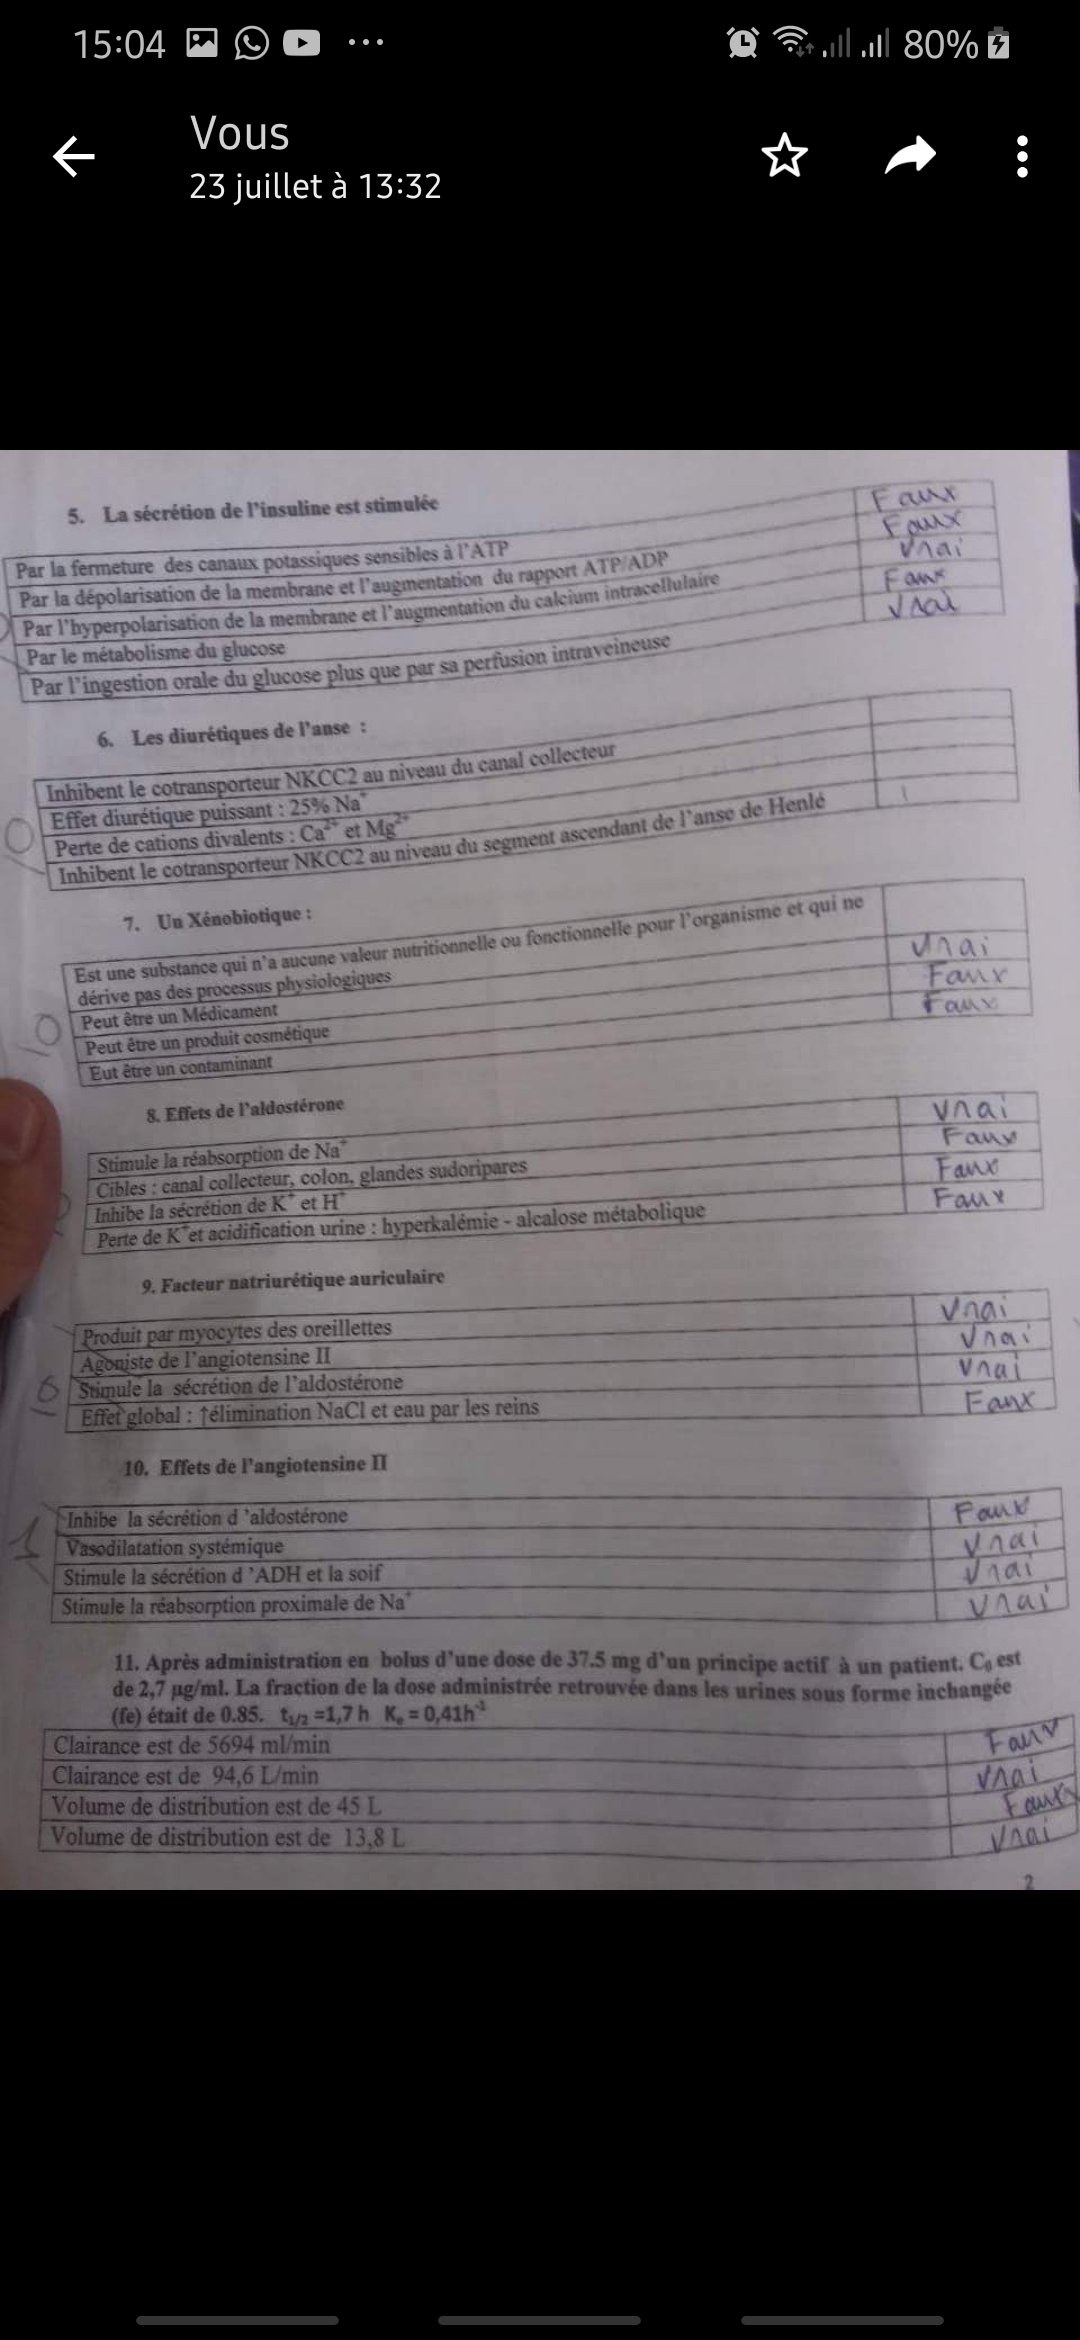 15:04 80%
Vous
23 juillet à 13:32
5. La sécrétion de l'insuline est stimulée
Par la fermeture des canaux potassiques sensibles à l'ATP Faux
Par la dépolarisation de la membrane et l'augmentation du rapport ATP/ADP Faux
Par l'hyperpolarisation de la membrane et l'augmentation du calcium intracellulaire Vrai
Par le métabolisme du glucose Faux
Par l'ingestion orale du glucose plus que par sa perfusion intraveineuse Vrai
6. Les diurétiques de l'anse :
Inhibent le cotransporteur NKCC2 au niveau du canal collecteur
Effet diurétique puissant : 25% Na⁺
Perte de cations divalents : Ca²⁺ et Mg²⁺
0
Inhibent le cotransporteur NKCC2 au niveau du segment ascendant de l'anse de Henlé
7. Un Xénobiotique :
Est une substance qui n'a aucune valeur nutritionnelle ou fonctionnelle pour l'organisme et qui ne
dérive pas des processus physiologiques
Peut être un Médicament Vrai
0
Peut être un produit cosmétique Faux
Eut être un contaminant Faux
8. Effets de l'aldostérone
Stimule la réabsorption de Na⁺ Vrai
Cibles : canal collecteur, colon, glandes sudoripares Faux
Inhibe la sécrétion de K⁺ et H⁺ Faux
Perte de K⁺et acidification urine : hyperkalémie - alcalose métabolique Faux
9. Facteur natriurétique auriculaire
Produit par myocytes des oreillettes Vrai
Agoniste de l'angiotensine II Vrai
0 Stimule la sécrétion de l'aldostérone Vrai
Effet global : ↑élimination NaCl et eau par les reins Faux
10. Effets de l'angiotensine II
Inhibe la sécrétion d 'aldostérone Faux
1 Vasodilatation systémique Vrai
Stimule la sécrétion d 'ADH et la soif Vrai
Stimule la réabsorption proximale de Na⁺ Vrai
11. Après administration en bolus d'une dose de 37.5 mg d'un principe actif à un patient. C₀ est
de 2,7 µg/ml. La fraction de la dose administrée retrouvée dans les urines sous forme inchangée
(fe) était de 0.85. t1/2 =1,7 h Kₑ = 0,41h⁻¹
Clairance est de 5694 ml/min Faux
Clairance est de 94,6 L/min Vrai
Volume de distribution est de 45 L Faux
Volume de distribution est de 13,8 L Vrai
2